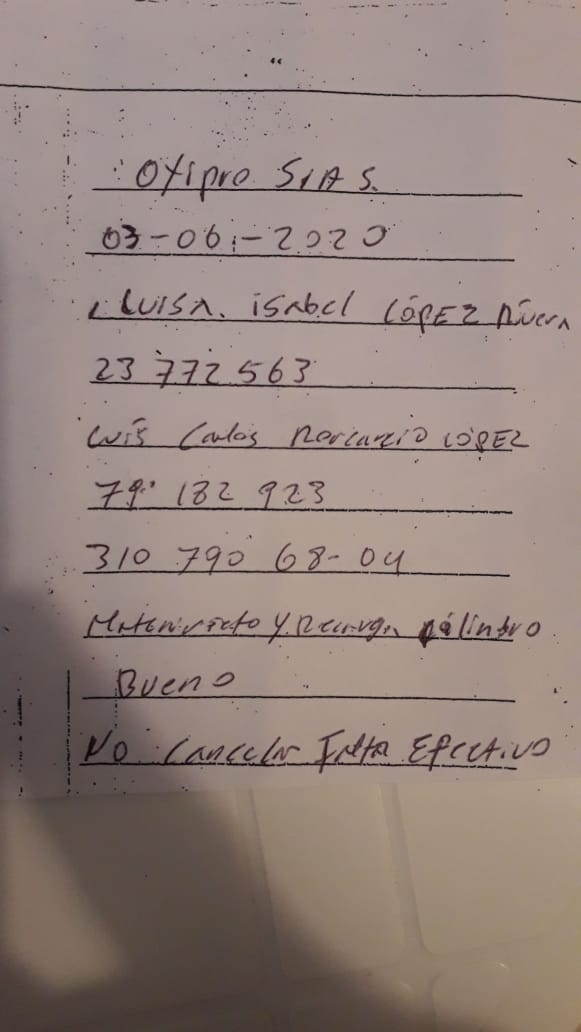 Oxipro S.A S.
03-06-2020
Luisa. isabel LÓPEZ Rivera
23 772 563
Luis Carlos LÓPEZ
79. 182 923
310 790 68-04
y Recarga cilindro
Bueno
No Cancelar Falta Efectivo